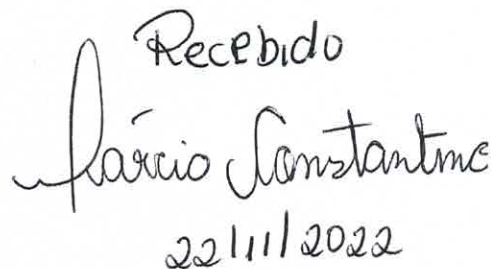 Recebido
Márcio Constantino
22/11/2022